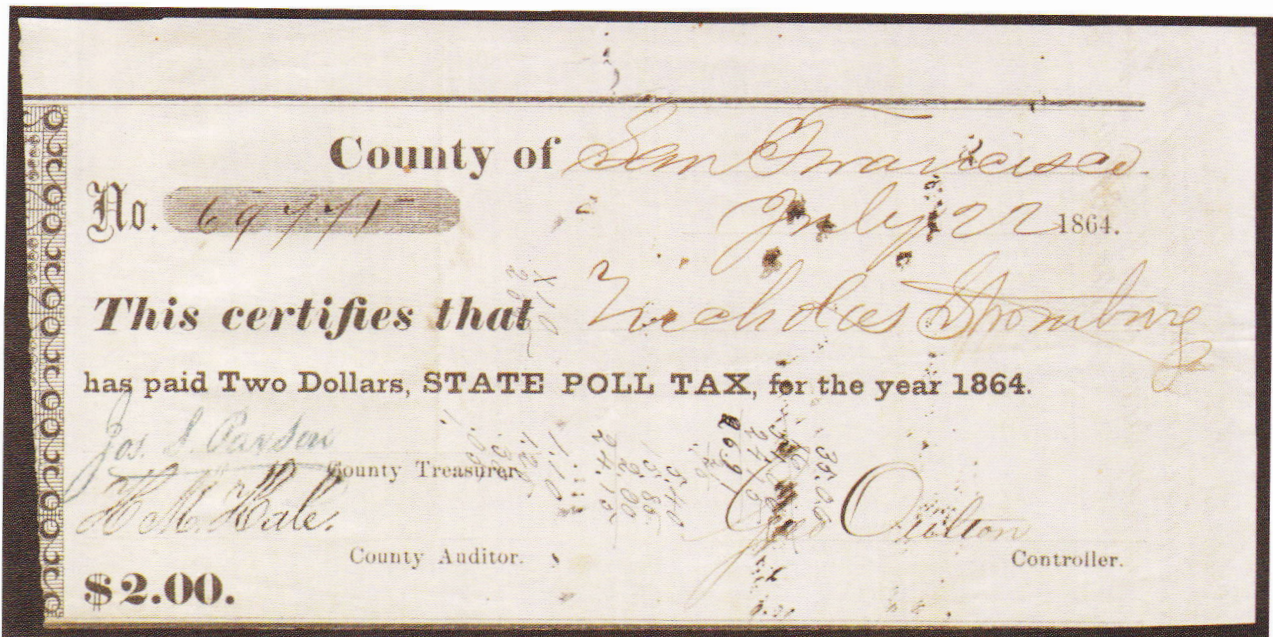 County of San Francisco
No. 69771
July 22 1864.
This certifies that Nicholas Stromburg
has paid Two Dollars, STATE POLL TAX, for the year 1864.
Jos. S. Paxson
County Treasurer.
H M. Hale.
County Auditor.
Geo Oulton
Controller.
$2.00.